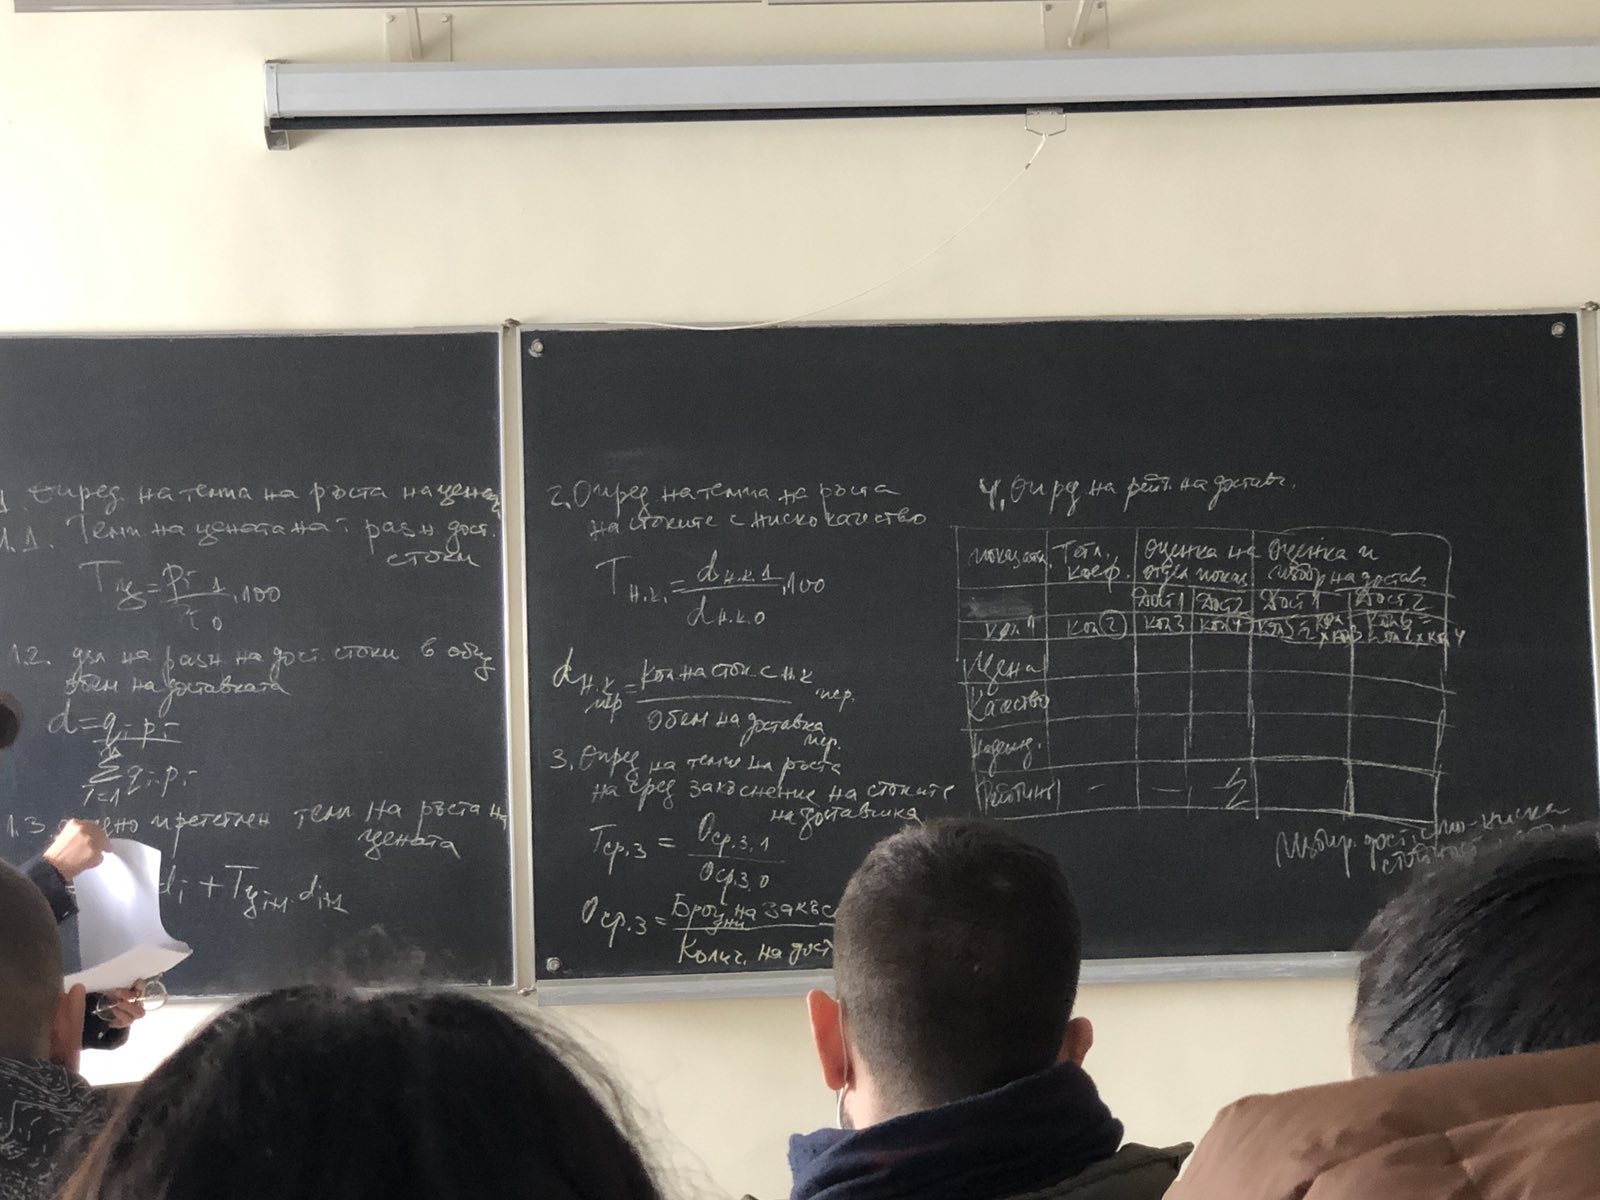 1. Опред. на темпа на ръста на цената
1.1. Темп на цената на i разн дост.
стоки
Tц = Pi 1 / 0 .100
1.2. дял на разн на дост. стоки в общ
обем на доставката
d = qi.pi
Σ qi.pi
i=1
1.3 претеглен темп на ръста на
цената
di + Tц i+1 . di+1
2. Опред на темпа на ръста
на стоките с ниско качество
Tн.к. = dн.к.1 / dн.к.0 .100
dн.к. пер = Кол на сток. с н.к пер.
Обем на доставка пер.
3. Опред на темпа на ръста
на сред закъснение на стоките
на доставчика
Tср.з = Oср.з,1
Oср.з,0
Oср.з = Брой дни на закъс
Колич. на дост
4. Опред на рейт. на достав.
показат. Тегл. коеф. Оценка на отдел показ Оценка и избор на достав
Дост 1 Дост 2 Дост 1 Дост. 2
кол 1 кол 2 кол 3 кол 4 кол 5 = кол 2 x кол 3 кол 6 = кол 2 x кол 4
Цена
Качество
Надежд.
Рейтинг - - Σ
Избир. дост. с по-ниска